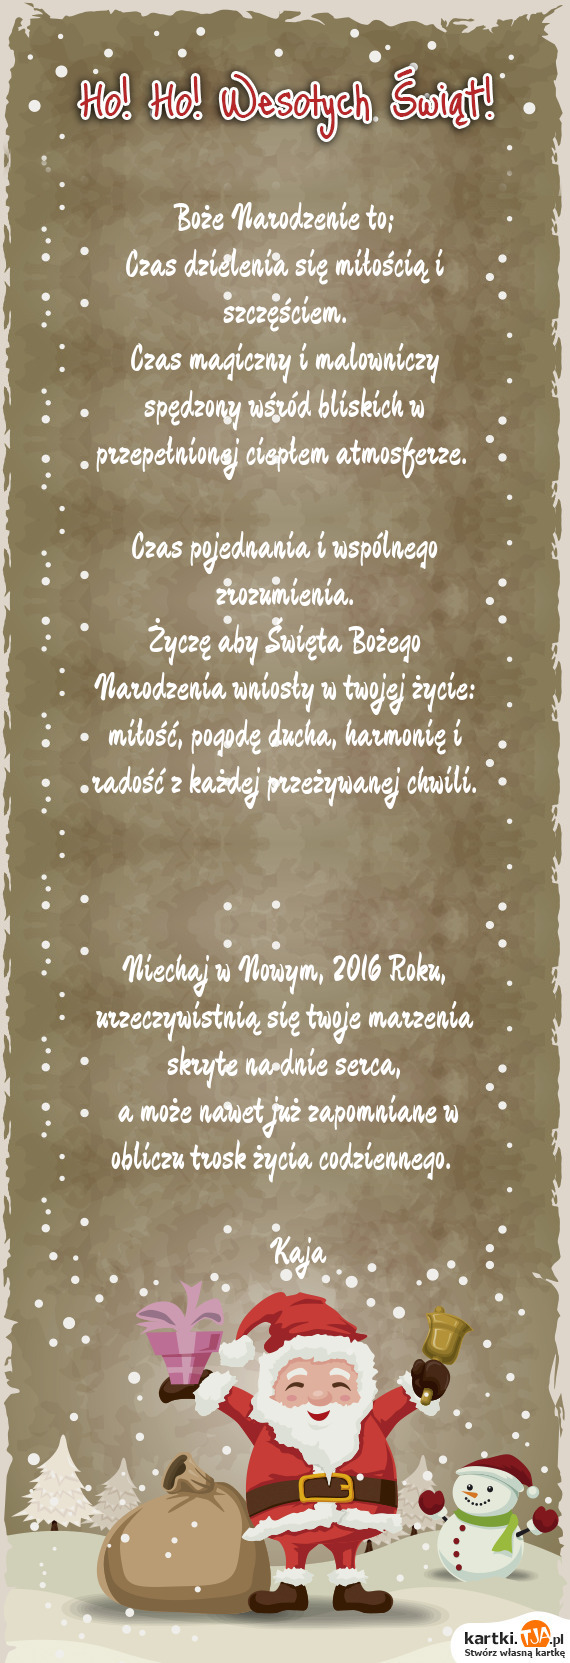 Ho! Ho! Wesołych Świąt!
Boże Narodzenie to;
Czas dzielenia się miłością i
szczęściem.
Czas magiczny i malowniczy
spędzony wśród bliskich w
przepełnionej ciepłem atmosferze.
Czas pojednania i wspólnego
zrozumienia.
Życzę aby Święta Bożego
Narodzenia wniosły w twojej życie:
miłość, pogodę ducha, harmonię i
radość z każdej przeżywanej chwili.
Niechaj w Nowym, 2016 Roku,
urzeczywistnią się twoje marzenia
skryte na dnie serca,
a może nawet już zapomniane w
obliczu trosk życia codziennego.
Kaja
kartki.TJA.pl
Stwórz własną kartkę